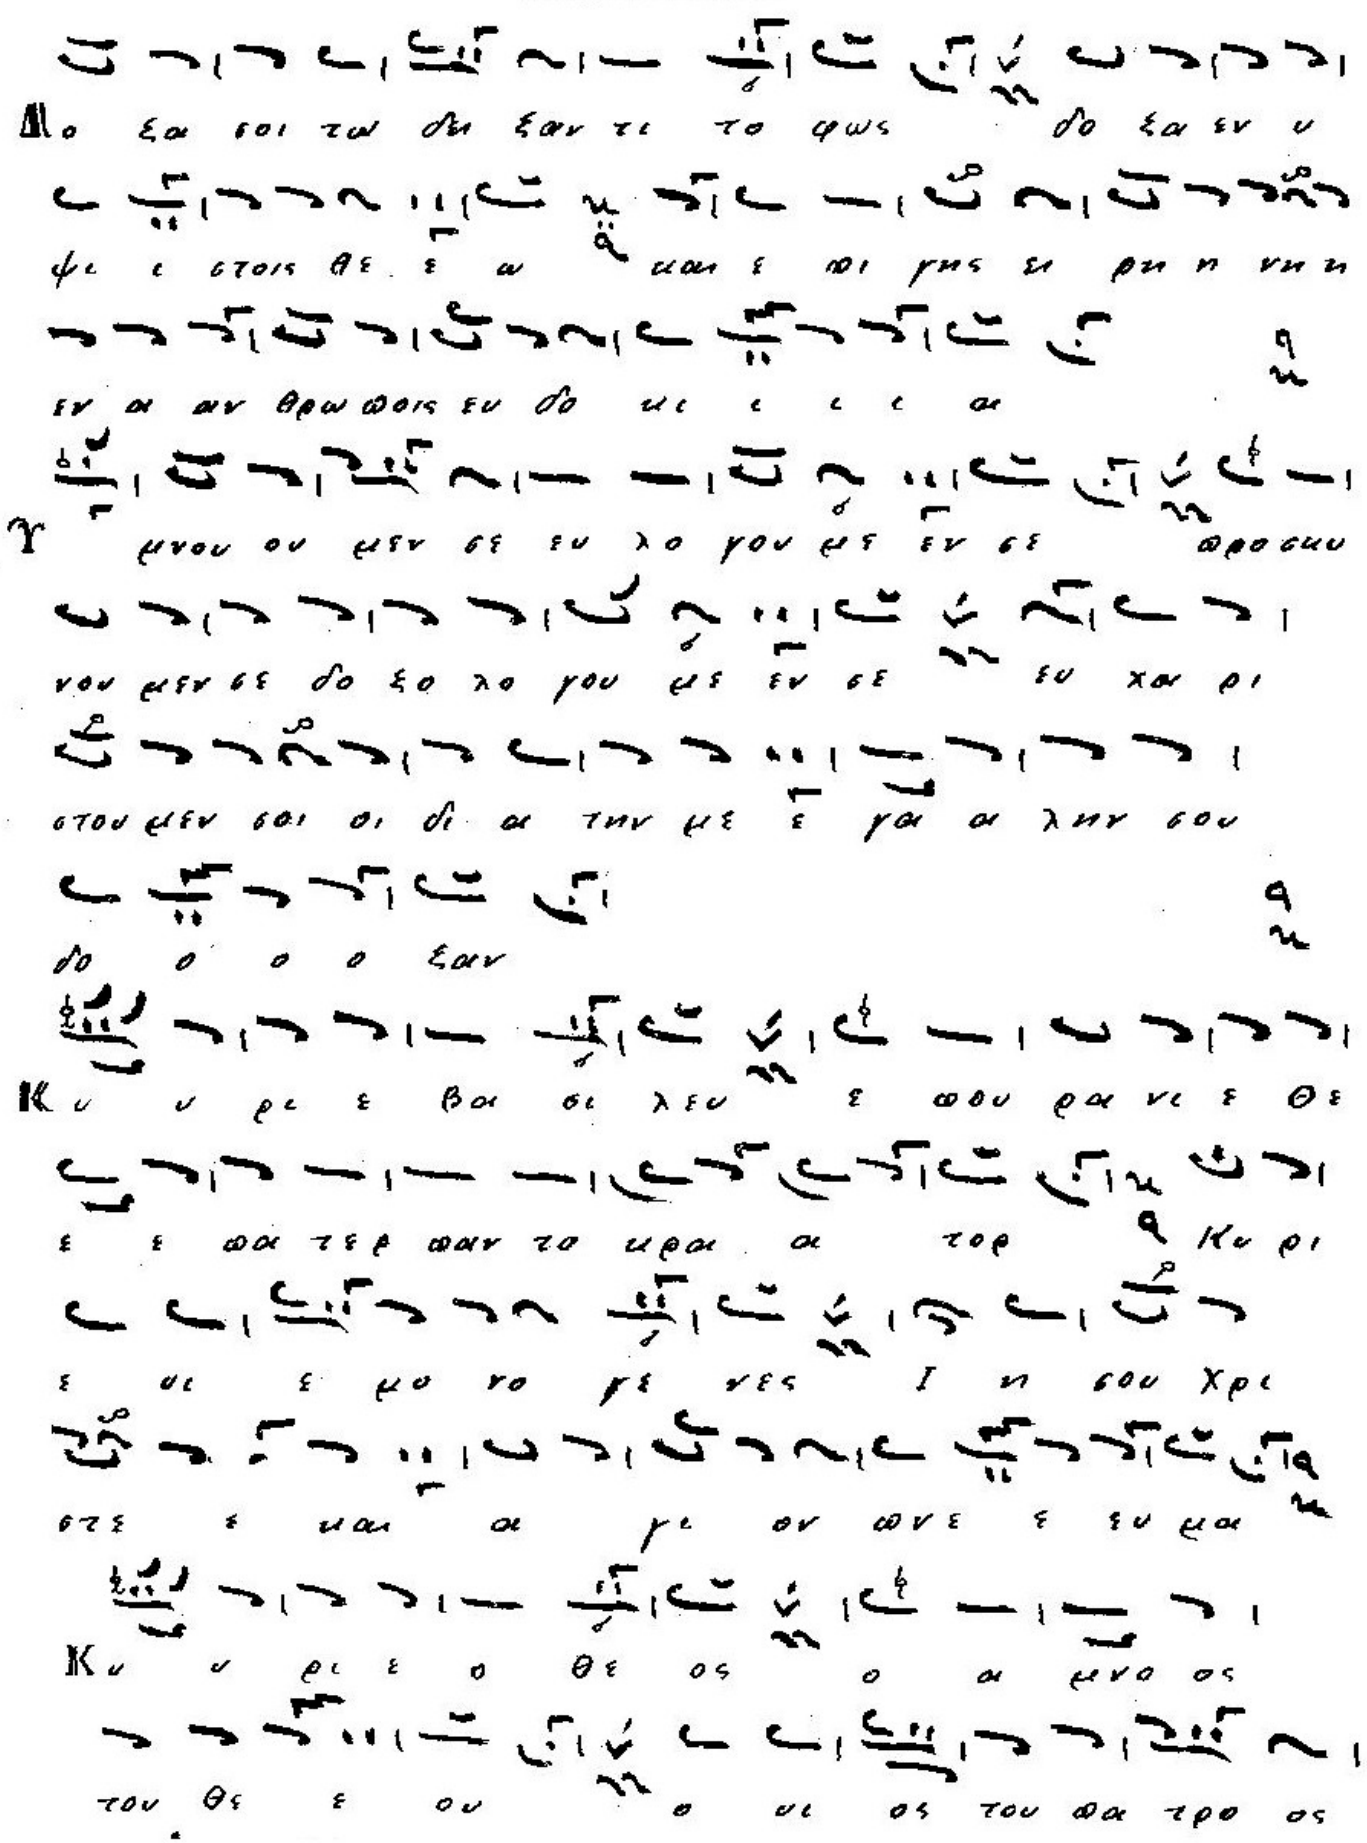 Δο ξα σοι τω δει ξαν τι το φως δο ξα εν υ
ψι ι στοις θε ε ω και ε πι γης ει ρη η νη η
εν α αν θρω ποις ευ δο κι ι ι ι α
Υ μνου ου μεν σε ευ λο γου με εν σε προσκυ
νου μεν σε δο ξο λο γου με εν σε ευ χα ρι
στου μεν σοι οι δι α την με ε γα α λην σου
δο ο ο ο ξαν
Κυ υ ρι ε βα σι λευ ε που ρα νι ε Θε
ε ε πα τερ παν το κρα α τορ Κυ ρι
ε υι ε μο νο γε νες Ι η σου Χρι
στε ε και α γι ον πνε ε ευ μα
Κυ υ ρι ε ο θε ος ο α μνο ος
του θε ε ου ο υι ος του πα τρο ος